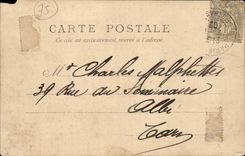 75
CARTE POSTALE
Ce côté est exclusivement réservé à l'adresse.
Mr Charles Malphettes
39 Rue du Séminaire
Albi
Tarn